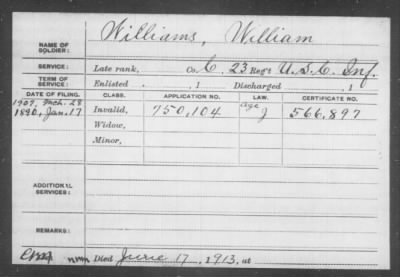 NAME OF SOLDIER: Williams, William
SERVICE: Late rank, Co. C, 23 Reg't U.S.C. Inf.
TERM OF SERVICE: Enlisted , 1 Discharged , 1
DATE OF FILING. CLASS. APPLICATION NO. LAW. CERTIFICATE NO.
1907, Mch. 28 Age
1890, Jan. 17 Invalid, 750,104 J 566,897
Widow,
Minor,
ADDITIONAL SERVICES:
REMARKS:
Died June 17, 1913, at